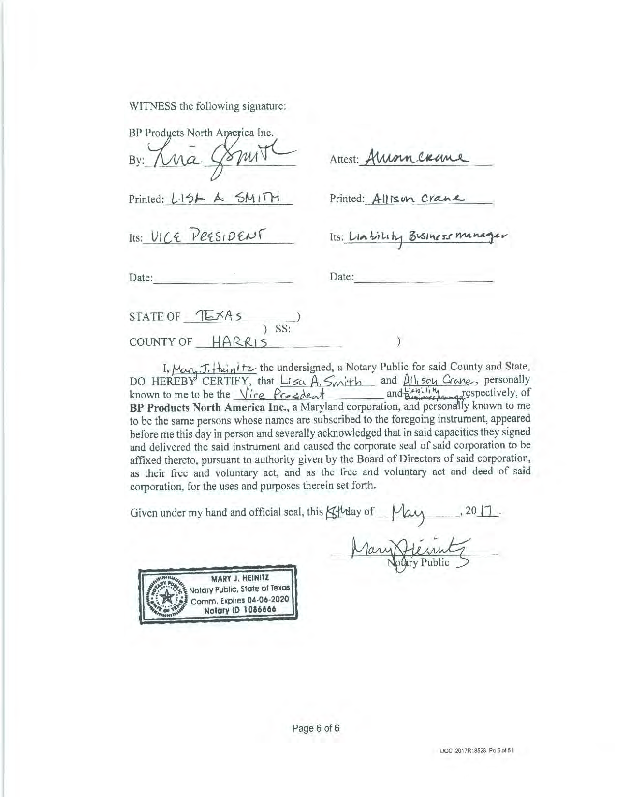 WITNESS the following signature:
BP Products North America Inc.
By: Lisa A Smith Attest: Allison Crane
Printed: LISA A SMITH Printed: Allison Crane
Its: VICE PRESIDENT Its: Liability Business Manager
Date: Date:
STATE OF TEXAS )
) SS:
COUNTY OF HARRIS )
I, Mary J. Heinitz the undersigned, a Notary Public for said County and State,
DO HEREBY CERTIFY, that Lisa A. Smith and Allison Crane, personally
known to me to be the Vice President and Liability Business Manager respectively, of
BP Products North America Inc., a Maryland corporation, and personally known to me
to be the same persons whose names are subscribed to the foregoing instrument, appeared
before me this day in person and severally acknowledged that in said capacities they signed
and delivered the said instrument and caused the corporate seal of said corporation to be
affixed thereto, pursuant to authority given by the Board of Directors of said corporation,
as their free and voluntary act, and as the free and voluntary act and deed of said
corporation, for the uses and purposes therein set forth.
Given under my hand and official seal, this day of May, 2017.
Mary J Heinitz
Notary Public
MARY J. HEINITZ
Notary Public, State of Texas
Comm. Expires 04-06-2020
Notary ID 1086666
Page 6 of 6